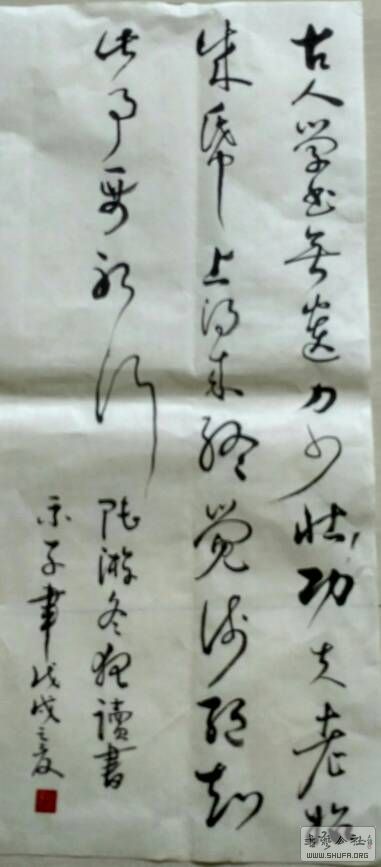 古人学无遗力少壮功夫老始
成帋上得来终觉浅绝知
此事要躬行
陆游冬夜讀書
示子聿戊戌之夏
WWW.SHUFA.ORG